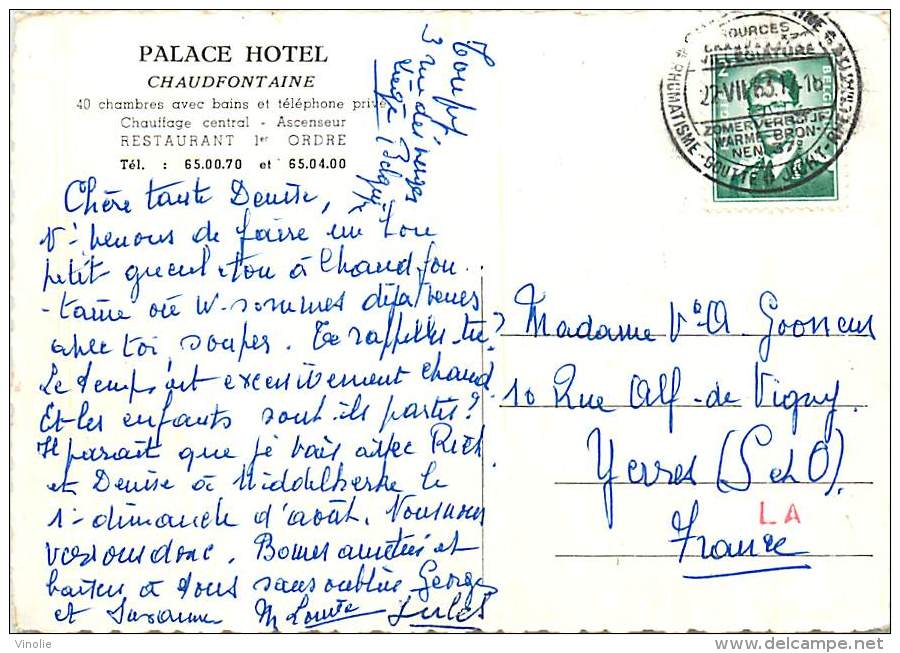 PALACE HOTEL
CHAUDFONTAINE
40 chambres avec bains et téléphone privé
Chauffage central - Ascenseur
RESTAURANT 1er ORDRE
Tél. : 65.00.70 et 65.04.00
3 rue des
Liège Belgique
Chère tante Denise,
venons de faire un bon
petit gueuleton à Chaudfon..
-taine où N. sommes déjà venus
avec toi, souper. Te rappelles-tu?
Le temps est excessivement chaud.
Et les enfants sont-ils partis?
Il parait que je vais avec Rich
et Denise à Middelkerke le
1er dimanche d'août. Nous nous
verrons donc. Bonnes amitiés et
baisers à tous sans oublier Georges
et Suzanne M Louise Jules
SOURCES
VILLEGIATURE
22-VII 63.1 -16
ZOMERVERBLIJF
WARME BRON-
NEN 37°
RHUMATISME-GOUTTE JICHT
Madame Ve A. Goossens
10 Rue Alf-de Vigny.
Yerres (S et O).
LA
France
Vinolie
www.delcampe.net